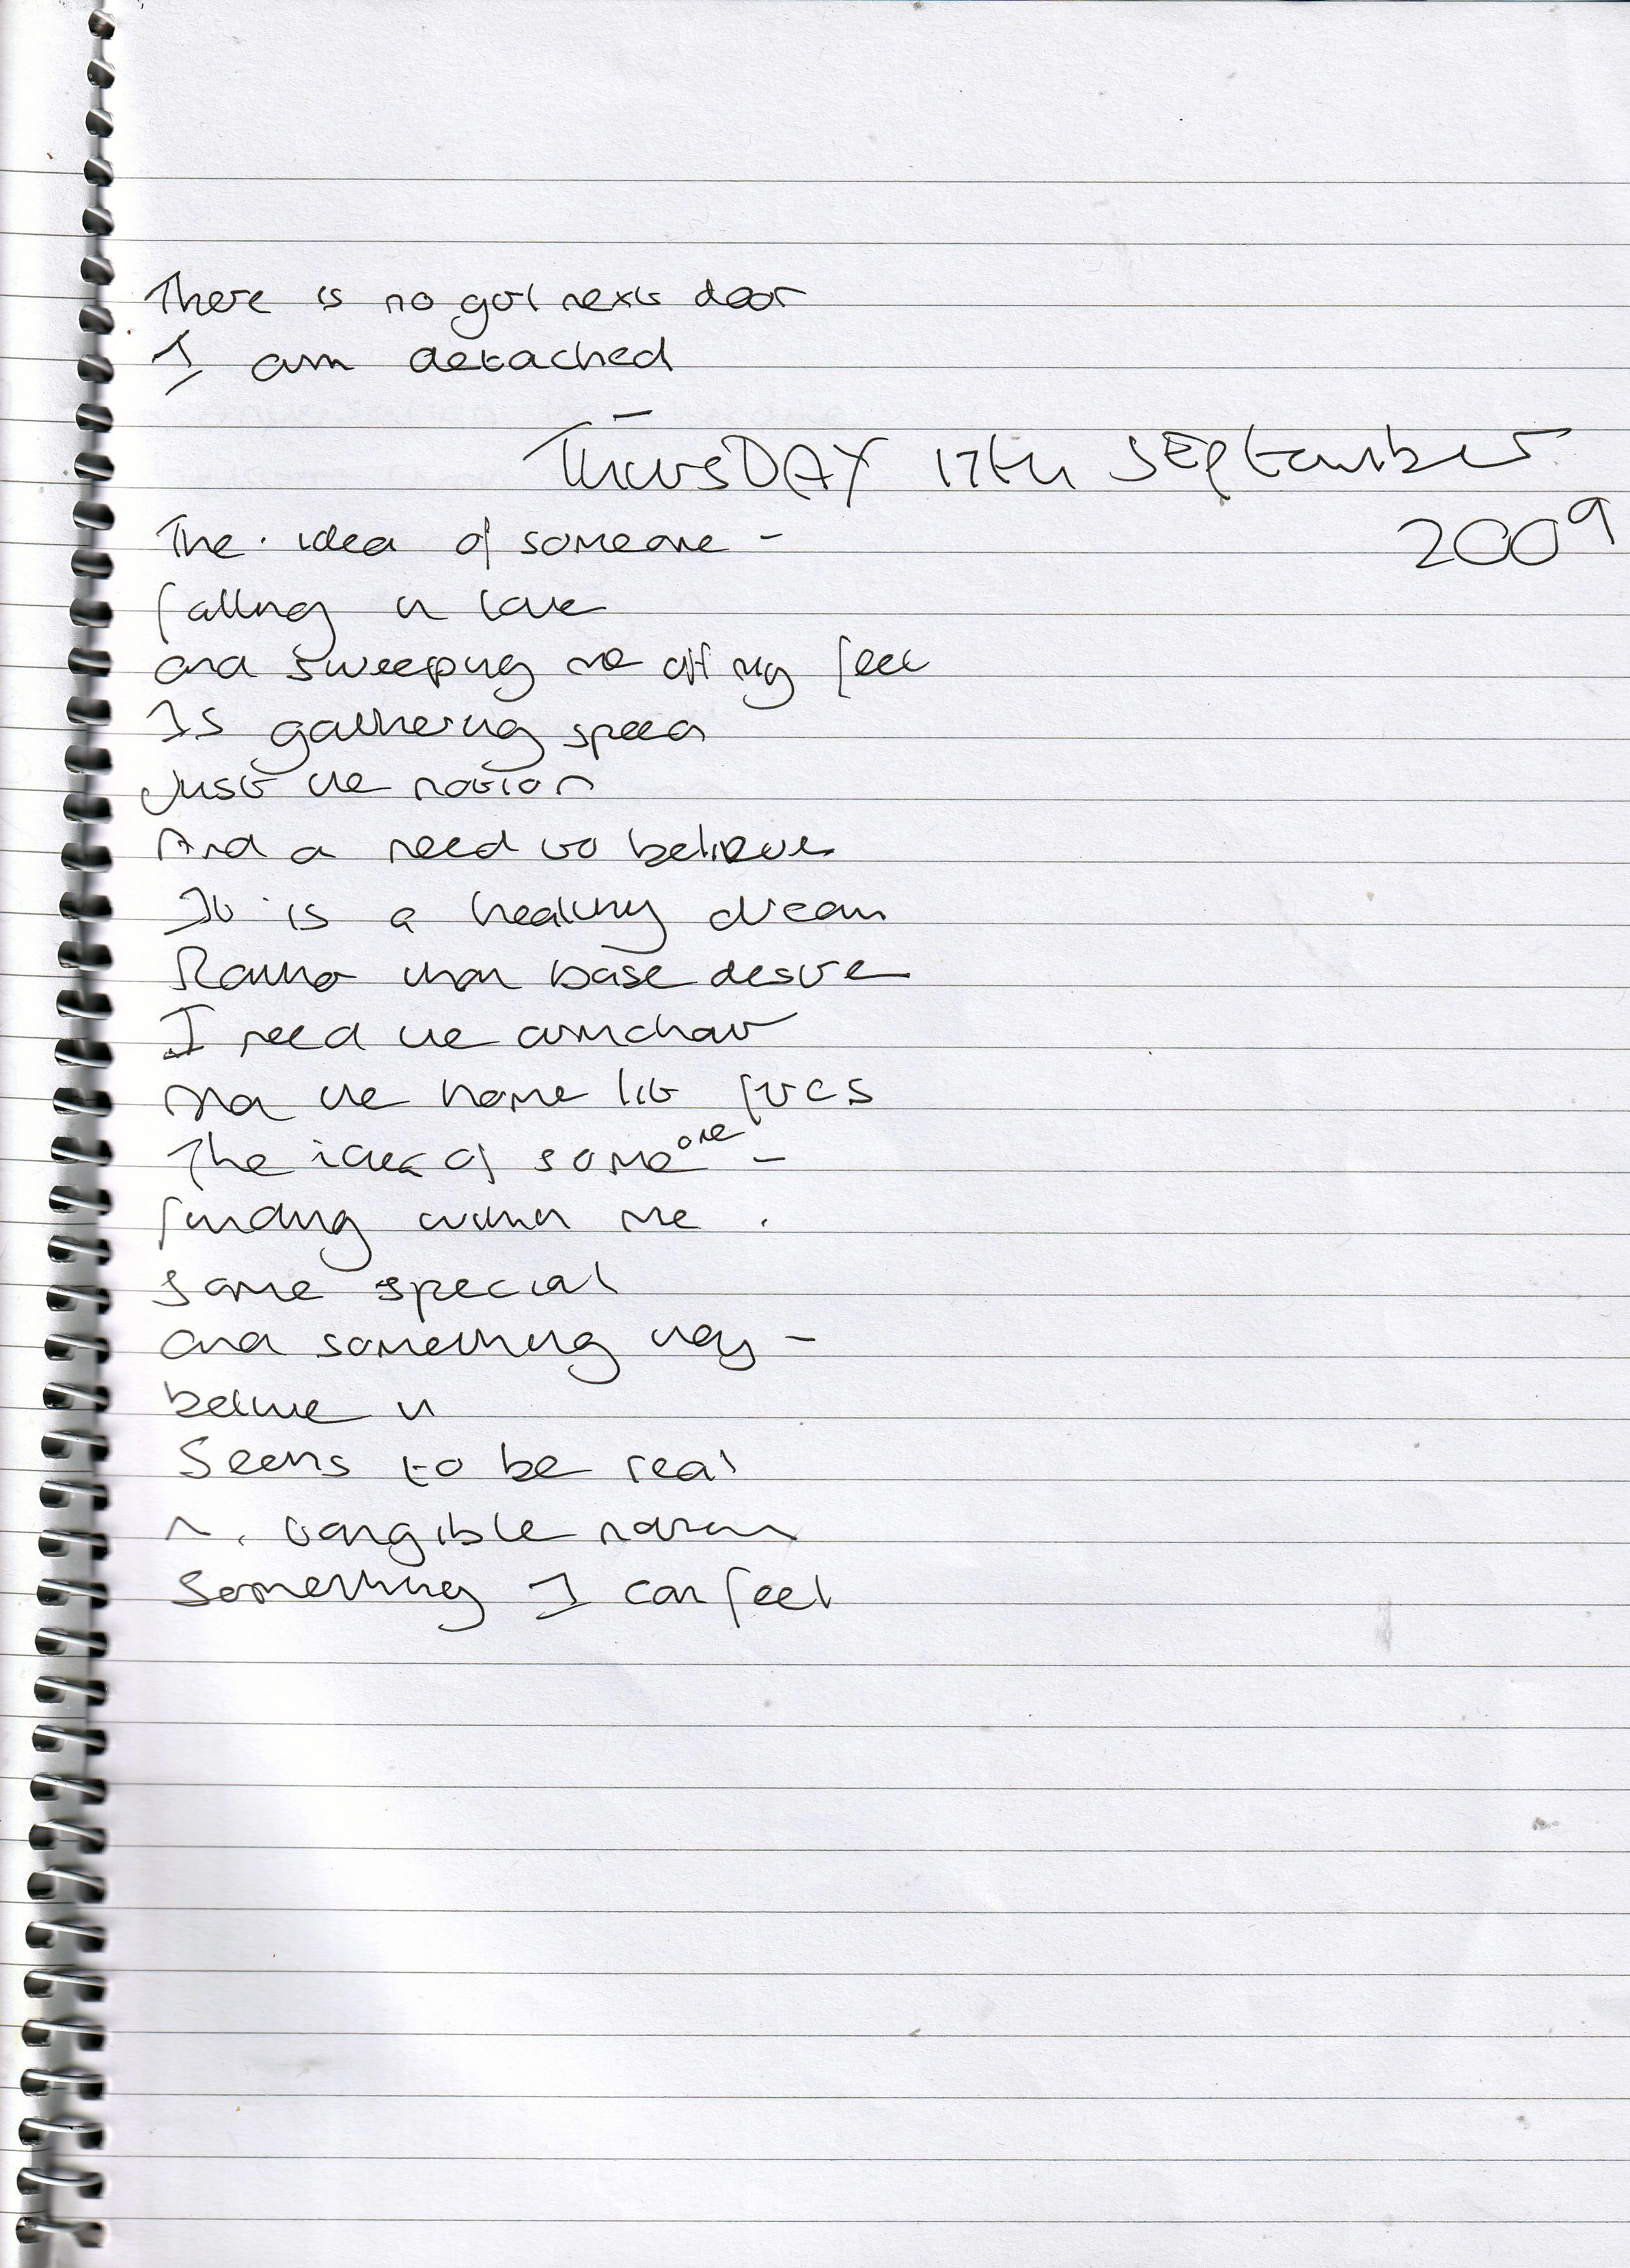 There is no girl next door
I am detached
—
THURSDAY 17th September
2009
The idea of someone -
falling in love
and sweeping me off my feet
Is gathering speed
Just the notion
And a need to believe
It is a healthy dream
Rather than base desire
I need the armchair
And the home lit fires
The idea of someone -
finding within me
some special
and something they -
believe in
Seems to be real
A tangible notion
Something I can feel